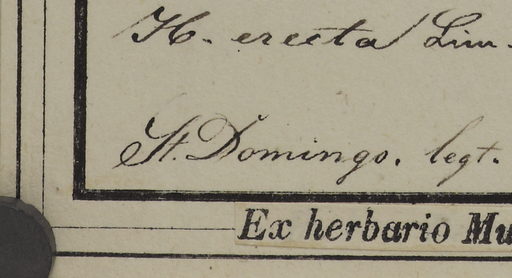 H. erecta Lin.
St. Domingo. legt.
Ex herbario Mu